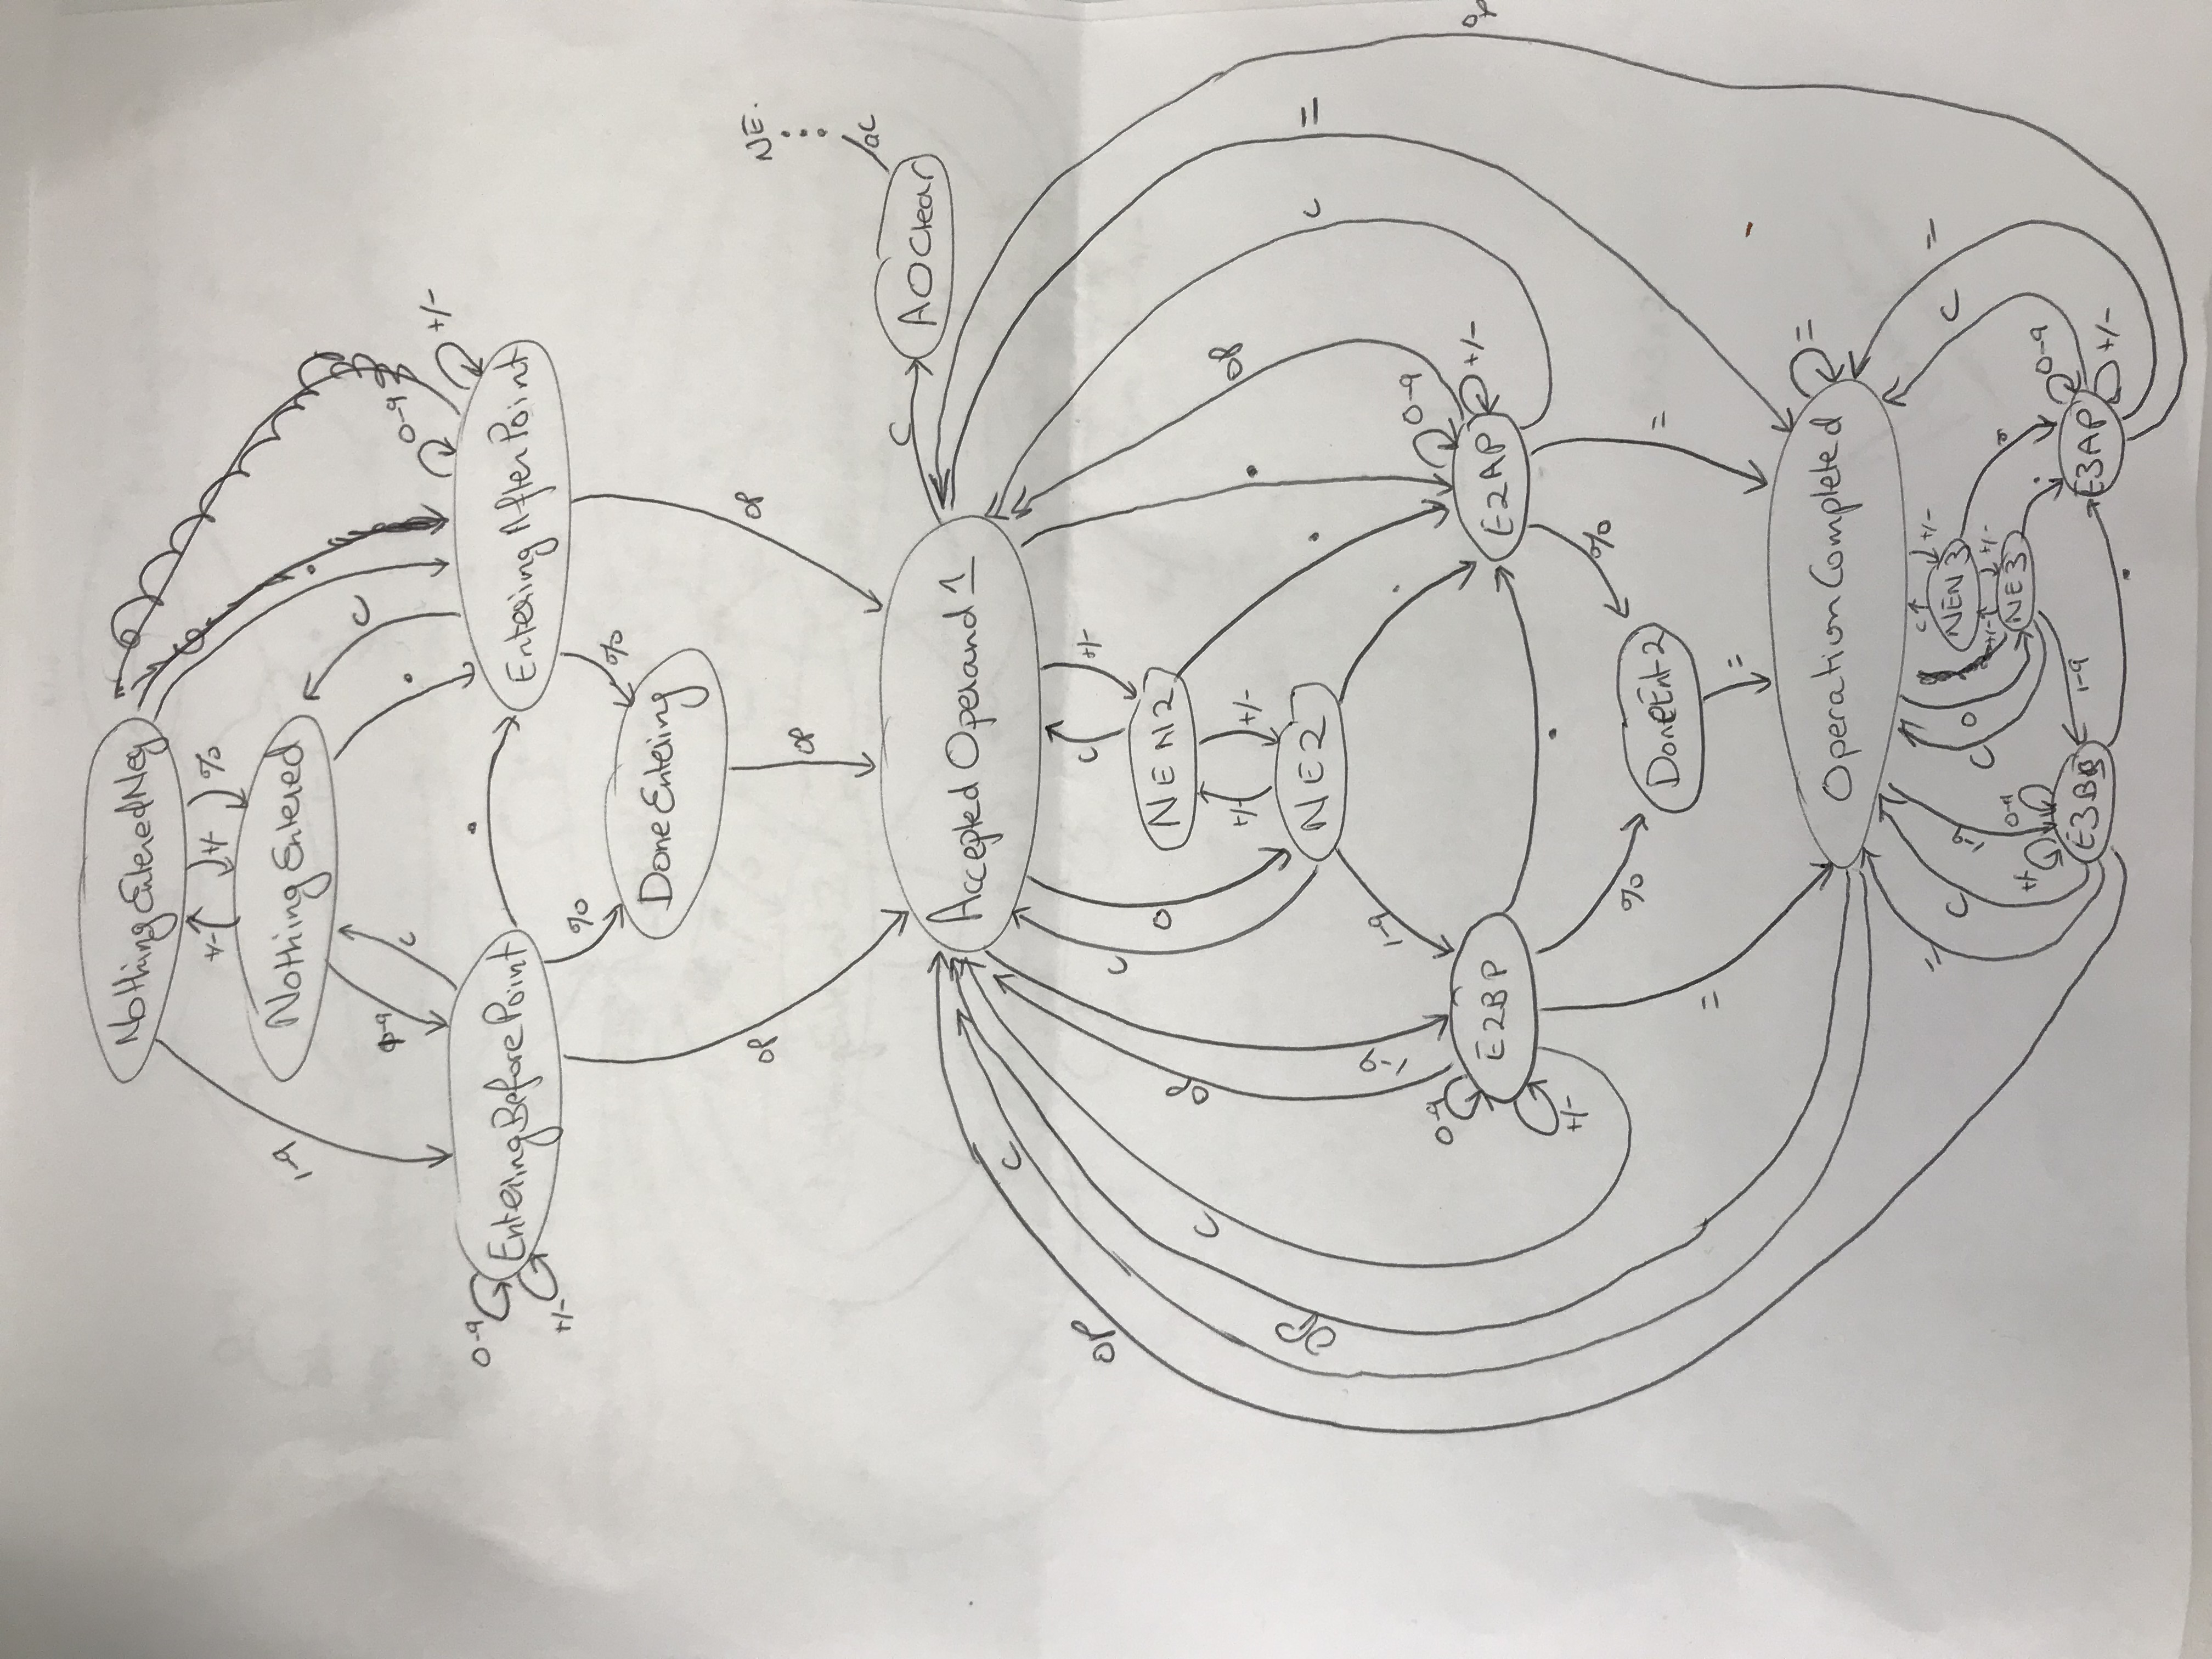 NothingEnteredNeg
+/- +/- %
NothingEntered
1-9
0-9
C
.
C
.
0-9
+/-
0-9
+/-
EnteringBeforePoint
.
EnteringAfterPoint
% %
DoneEntering
OP
OP
OP
NE.
ac
C
AOClear
Accepted Operand 1
C
OP
C +/-
C
O
NEN2
OP
C
+/- +/-
.
OP
OP
NE2
.
C
=
1-9
1-9
.
0-9
0-9
E2BP
E2AP
+/-
OP
+/-
.
% %
DoneEnt2
=
=
=
OperationCompleted
=
=
C
1-9
C
O
C
+/-
NEN3
+/- +/-
NE3
.
.
C
=
+/-
0-9
0-9
E3BP
1-9
E3AP
+/-
.